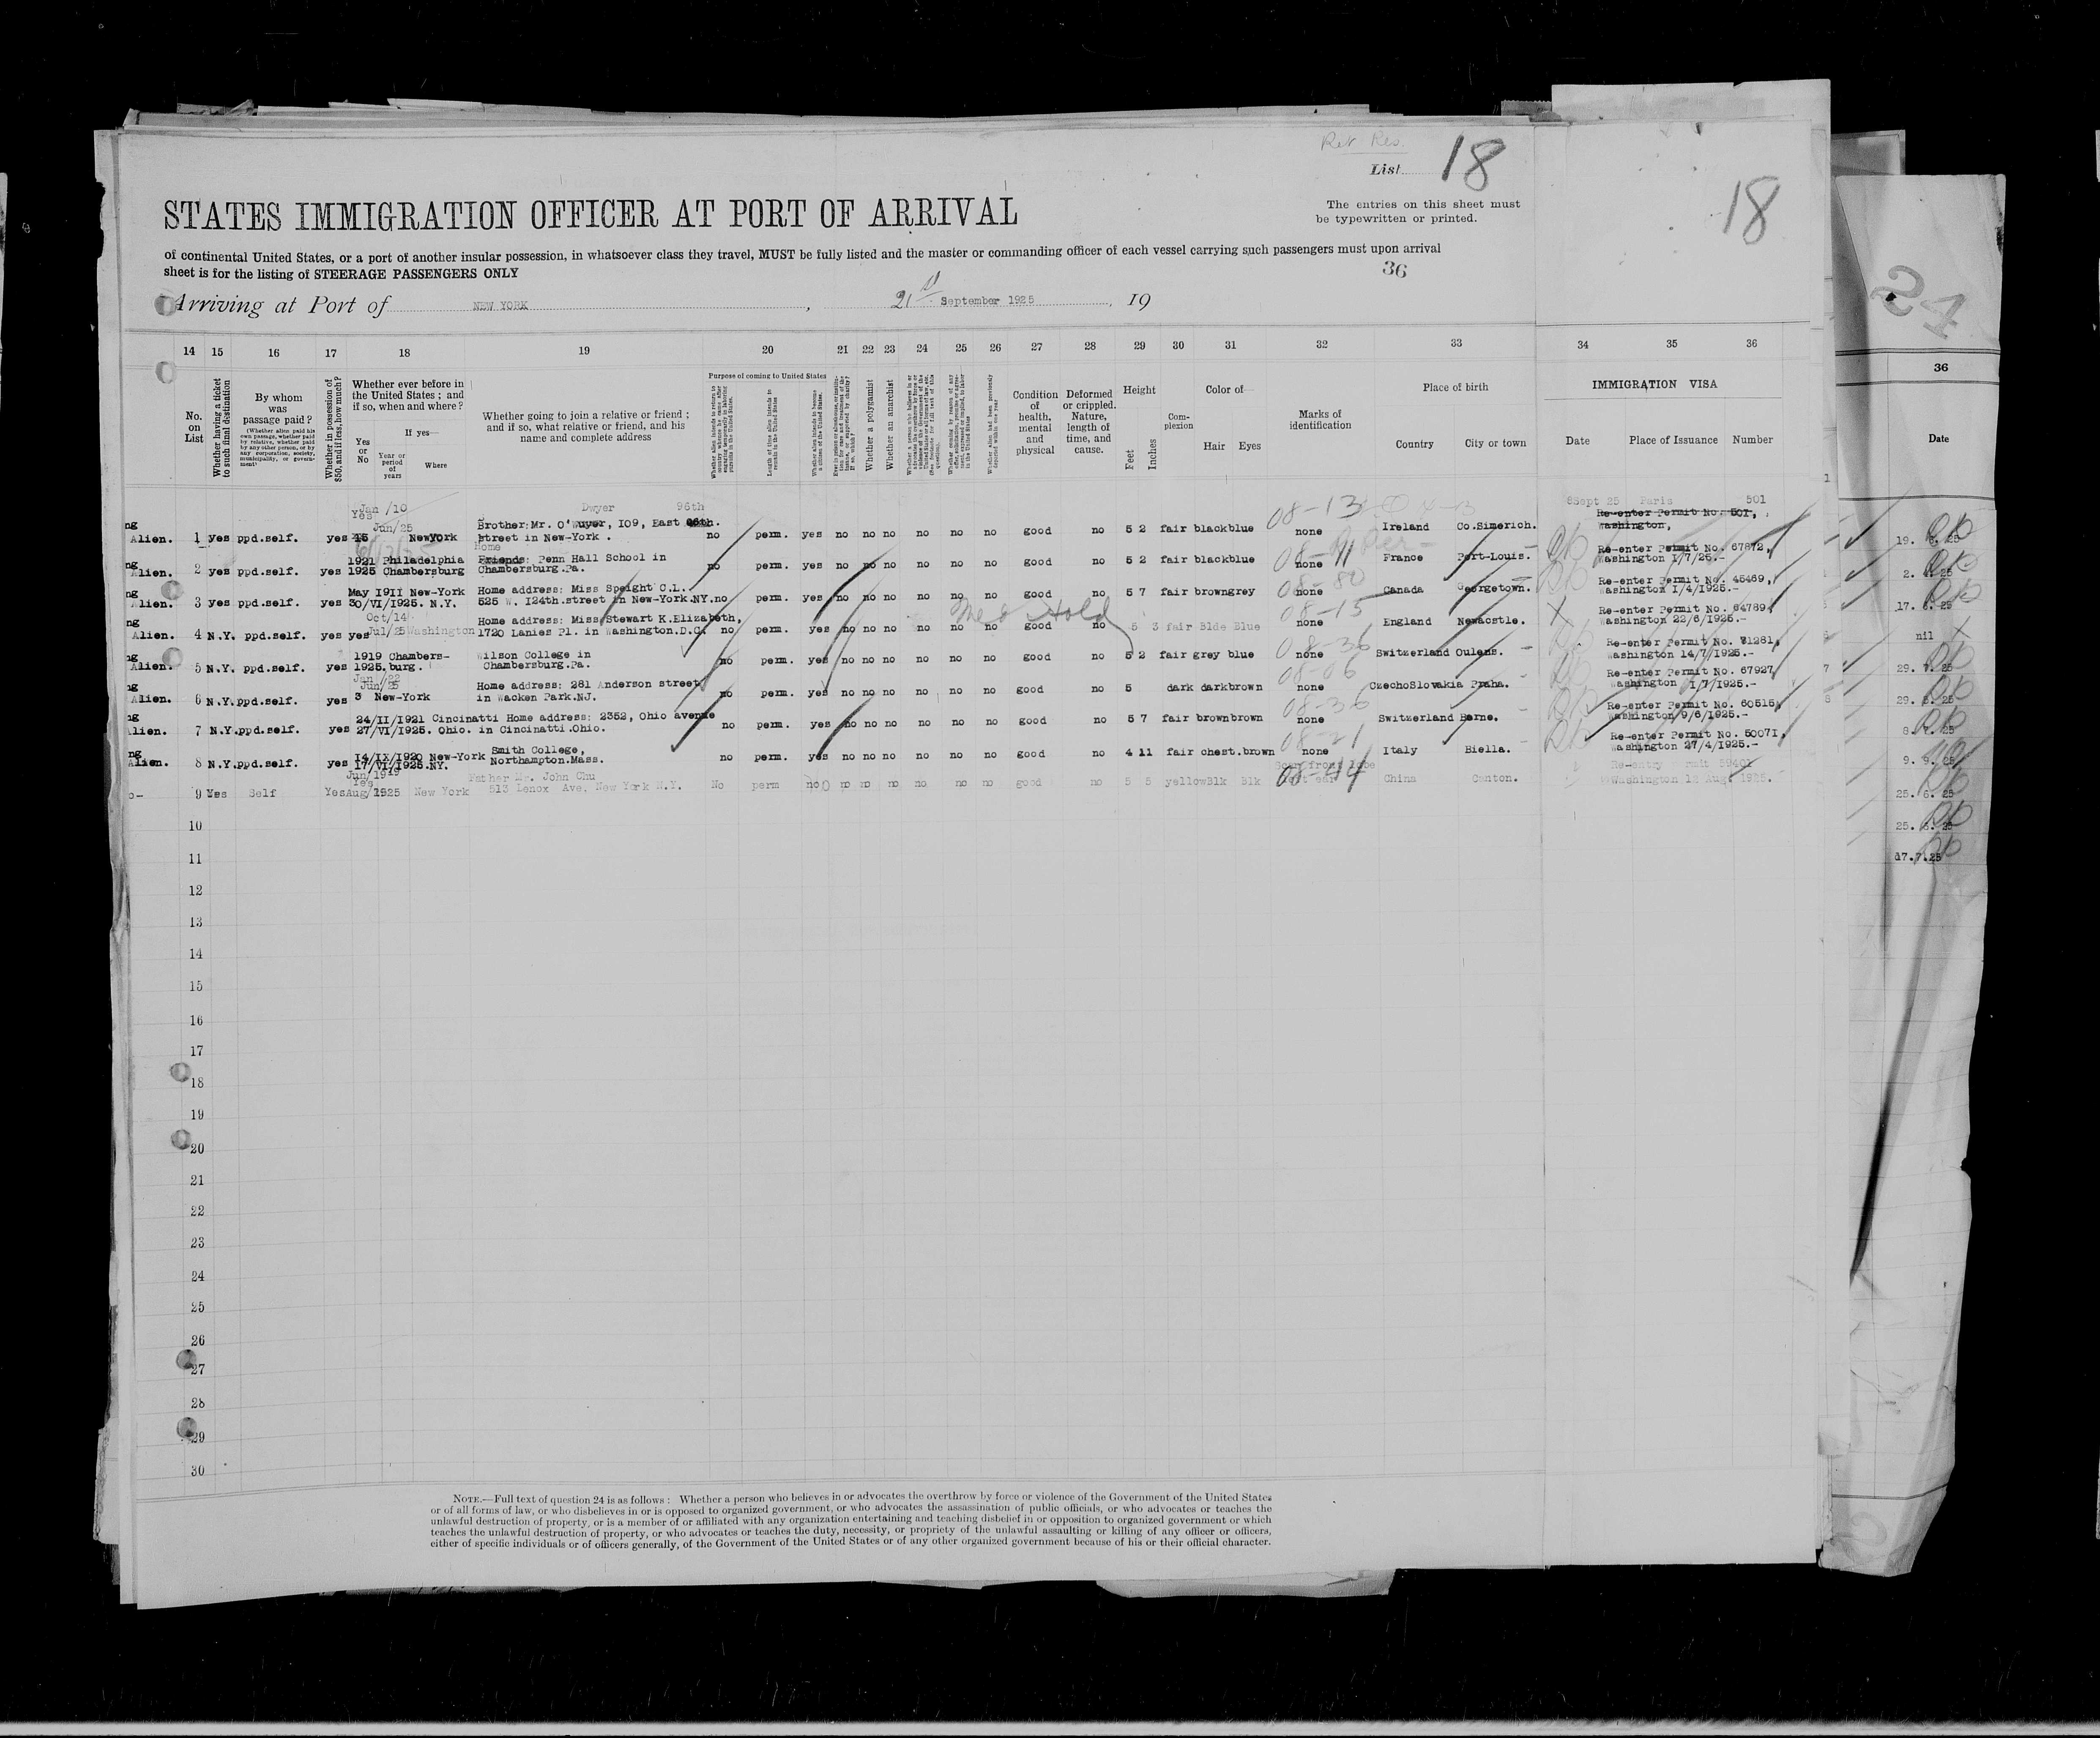 Ret Res.
List 18
18
STATES IMMIGRATION OFFICER AT PORT OF ARRIVAL
The entries on this sheet must
be typewritten or printed.
of continental United States, or a port of another insular possession, in whatsoever class they travel, MUST be fully listed and the master or commanding officer of each vessel carrying such passengers must upon arrival
sheet is for the listing of STEERAGE PASSENGERS ONLY
36
24
Arriving at Port of NEW YORK, 21st September 1925, 19
14 15 16 17 18 19 20 21 22 23 24 25 26 27 28 29 30 31 32 33 34 35 36
36
No. on List
Whether having a ticket to such final destination
By whom was passage paid?
(Whether alien paid his own passage, whether paid by relative, whether paid by any other person, or by any corporation, society, municipality, or government)
Whether in possession of $50, and if less, how much?
Whether ever before in the United States; and if so, when and where?
Yes or No
If yes—
Year or period of years
Where
Whether going to join a relative or friend; and if so, what relative or friend, and his name and complete address
Purpose of coming to United States
Length of time alien intends to remain in the United States
Whether alien intends to become a citizen of the United States
Whether a polygamist
Whether an anarchist
Condition of health, mental and physical
Deformed or crippled. Nature, length of time, and cause.
Height
Feet Inches
Complexion
Color of—
Hair Eyes
Marks of identification
Place of birth
Country City or town
IMMIGRATION VISA
Date Place of Issuance Number
Date
Jan /10 Dwyer 96th 08-13 8Sept 25 Paris 501
Yes Jun/25 Brother: Mr. O' , 109, East 96th. Re-enter Permit No. 501,
Alien. 1 yes ppd.self. yes NewYork street in New-York. no perm. yes no no no no no no good no 5 2 fair black blue none Ireland Co.Simerich. Washington,
Home
1921 Philadelphia Friends: Penn Hall School in 08-11 Re-enter Permit No. 67872,
Alien. 2 yes ppd.self. yes 1925 Chambersburg Chambersburg.Pa. no perm. yes no no no no no no good no 5 2 fair black blue none France Port-Louis. Washington 1/7/25.-
May 1911 New-York Home address: Miss Speight C.L. 08-80 Re-enter Permit No. 45469,
Alien. 3 yes ppd.self. yes 30/VI/1925. N.Y. 525 W. 124th.street in New-York.NY. no perm. yes no no no no no no good no 5 7 fair brown grey none Canada Georgetown. Washington 1/4/1925.-
Oct/14 Home address: Miss Stewart K.Elizabeth, Med Hold 08-15 Re-enter Permit No. 64789,
Alien. 4 N.Y. ppd.self. yes yes Jul/25 Washington 1720 Lanies Pl. in Washington.D.C. no perm. yes no no no no no no good no 5 3 fair Blde Blue none England Newcastle. Washington 22/6/1925.-
1919 Chambers- Wilson College in 08-36 Re-enter Permit No. 71281,
Alien. 5 N.Y. ppd.self. yes 1925.burg. Chambersburg.Pa. no perm. yes no no no no no no good no 5 2 fair grey blue none Switzerland Oulens. Washington 14/7/1925.-
Jan /22
Jun/25 Home address: 281 Anderson street, 08-06 Re-enter Permit No. 67927,
Alien. 6 N.Y. ppd.self. yes 3 New-York in Wacken Park.NJ. no perm. yes no no no no no no good no 5 dark dark brown none CzechoSlovakia Praha. Washington 1/7/1925.-
24/II/1921 Cincinatti Home address: 2352, Ohio avenue 08-36 Re-enter Permit No. 60515,
Alien. 7 N.Y. ppd.self. yes 27/VI/1925. Ohio. in Cincinatti.Ohio. no perm. yes no no no no no no good no 5 7 fair brown brown none Switzerland Berne. Washington 9/6/1925.-
14/IX/1920 New-York Smith College, 08-21 Re-enter Permit No. 50071,
Alien. 8 N.Y. ppd.self. yes 17/VI/1925.NY. Northampton.Mass. no perm. yes no no no no no no good no 4 11 fair chest. brown none Italy Biella. Washington 27/4/1925.-
Jun/1919 Father Mr. John Chu 08-44 Re-entry Permit 59401
9 Yes Self Yes Yes Aug/1925 New York 513 Lenox Ave. New York N.Y. No perm no no no no no no no good no 5 5 yellow Blk Blk China Canton. Washington 12 Aug. 1925.-
10
11
12
13
14
15
16
17
18
19
20
21
22
23
24
25
26
27
28
29
30
nil
29. 7. 25
9. 9. 25
25. 6. 25
17.7.25
NOTE.—Full text of question 24 is as follows: Whether a person who believes in or advocates the overthrow by force or violence of the Government of the United States
or of all forms of law, or who disbelieves in or is opposed to organized government, or who advocates the assassination of public officials, or who advocates or teaches the
unlawful destruction of property, or is a member of or affiliated with any organization entertaining and teaching disbelief in or opposition to organized government or which
teaches the unlawful destruction of property, or who advocates or teaches the duty, necessity, or propriety of the unlawful assaulting or killing of any officer or officers,
either of specific individuals or of officers generally, of the Government of the United States or of any other organized government because of his or their official character.